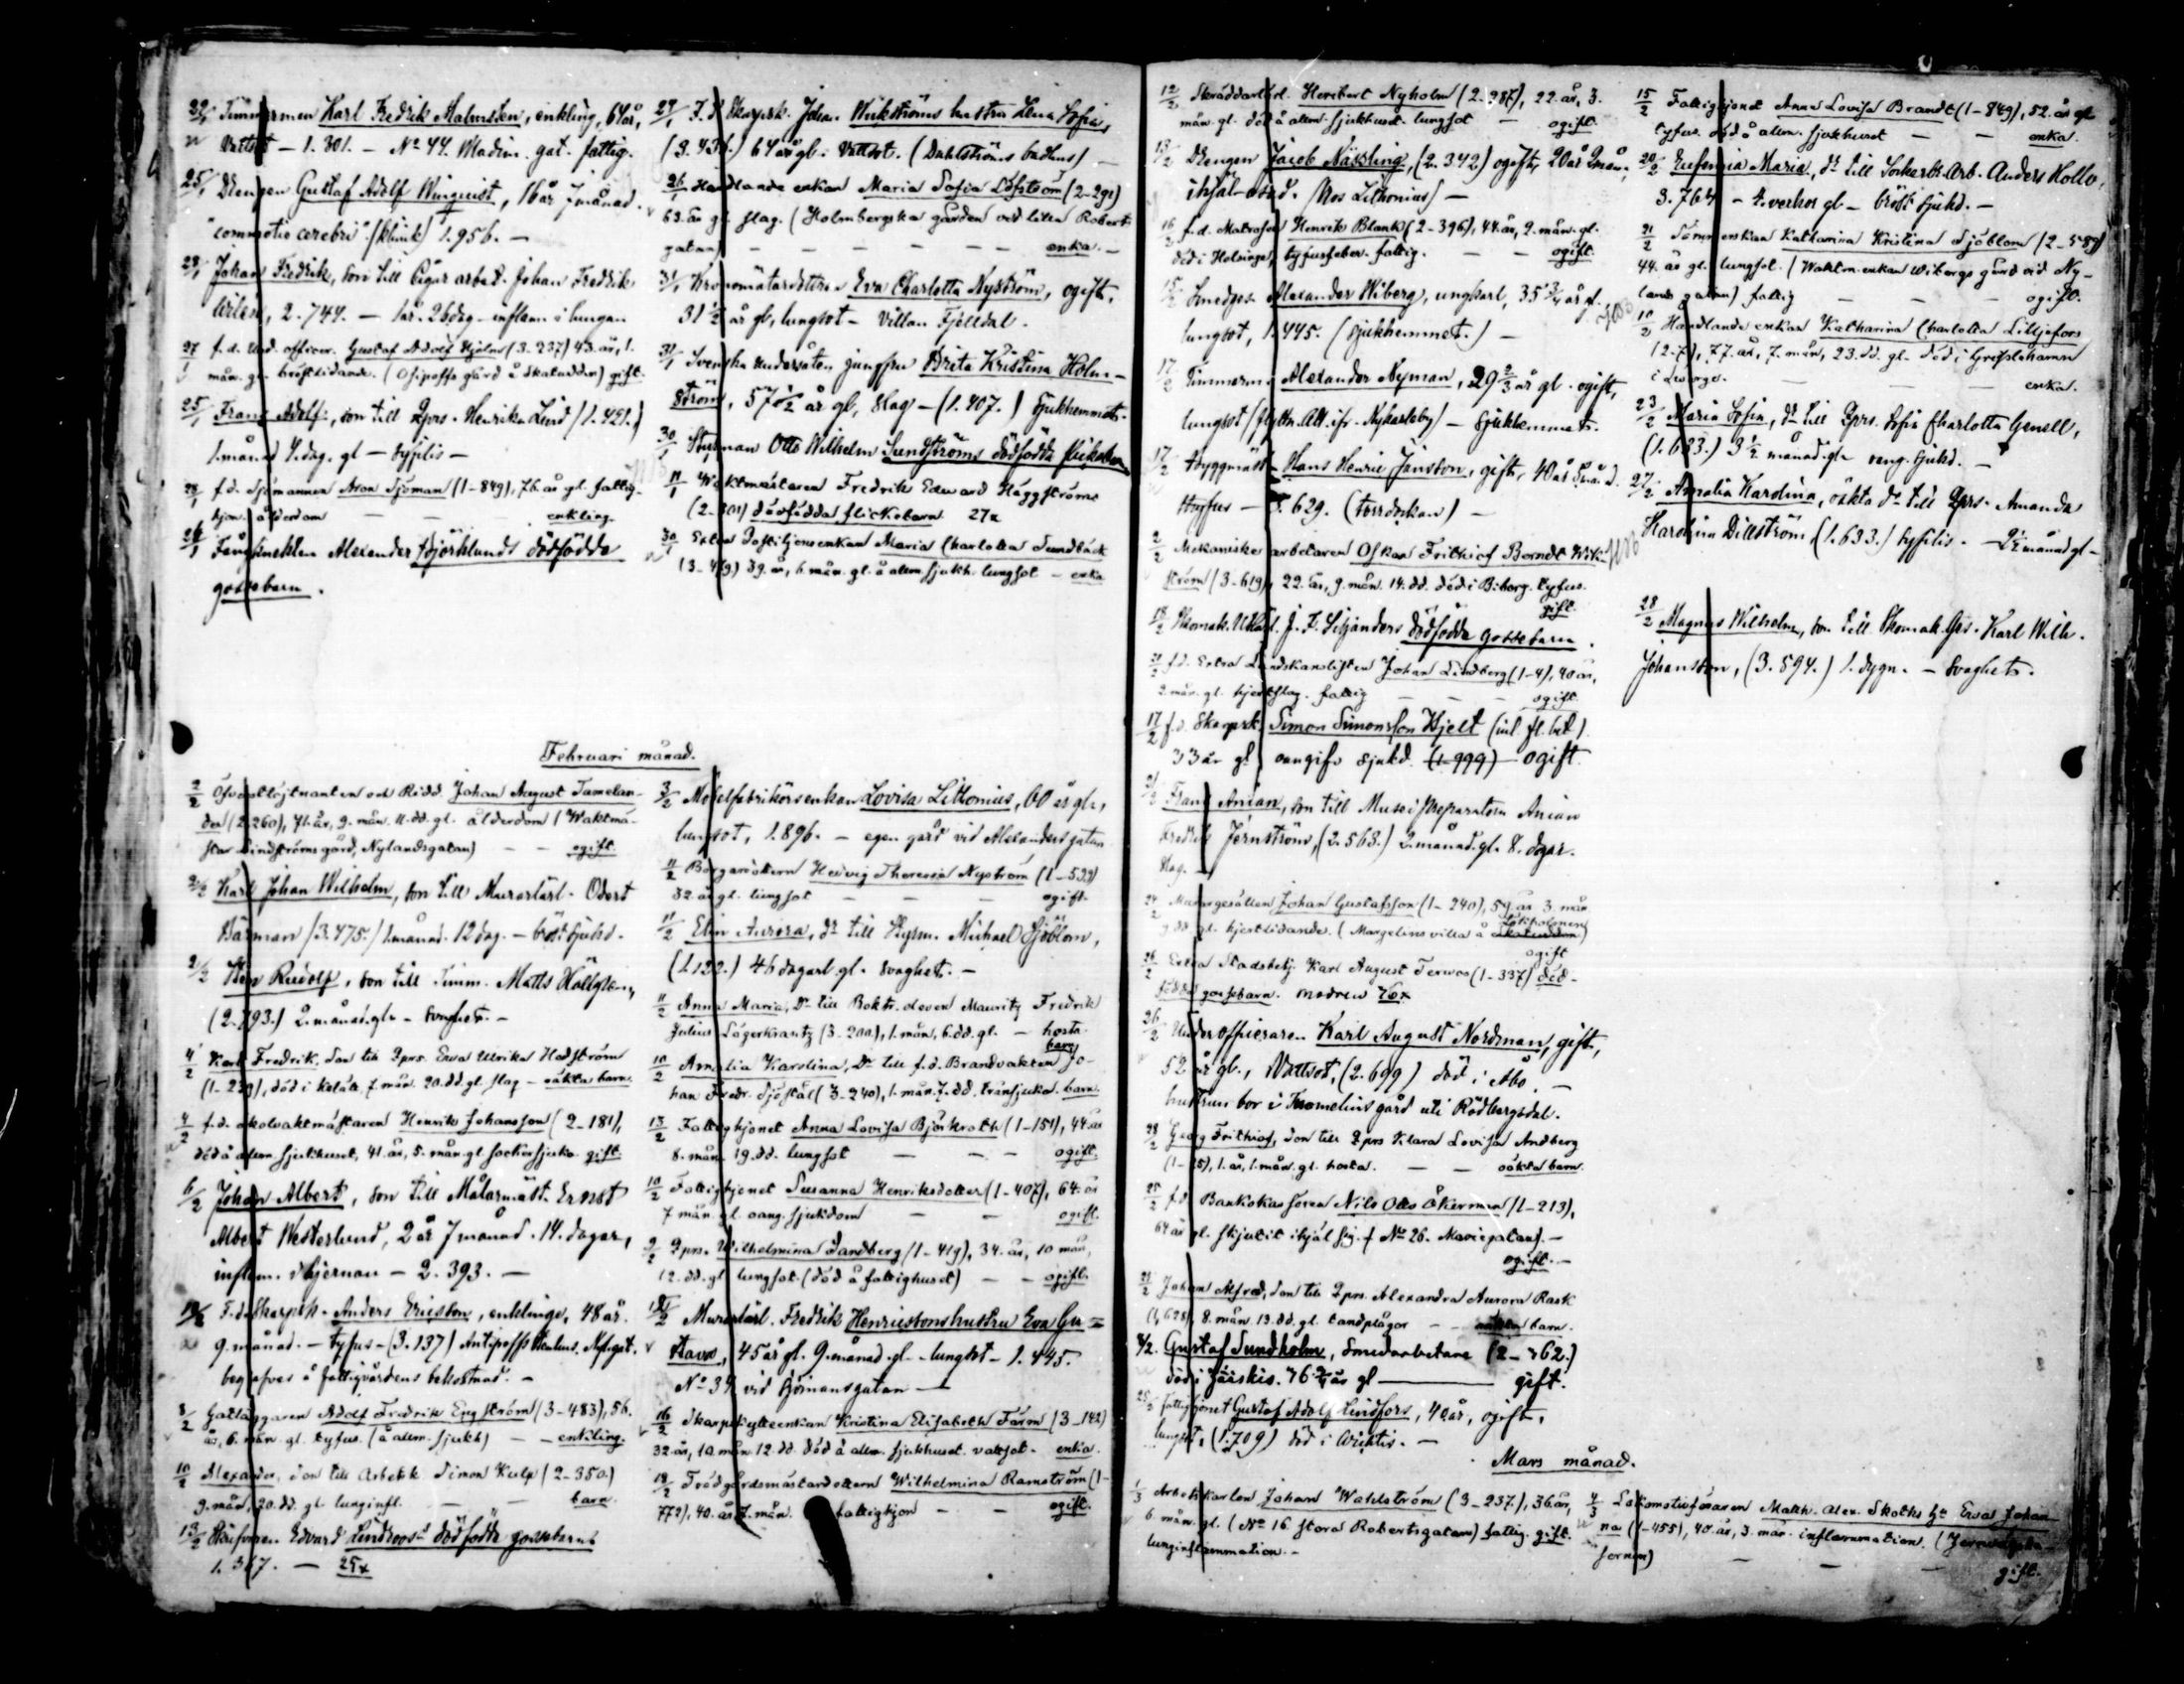 29/1 Timmermen Karl Fredrik Malmsten, enkling, 64 år,
Vattsot – 1.301. – No 44. Madin. gat. fattig.
25/1 Drengen Gustaf Adolf Winquist, 16 år 7 månad.
"commotio cerebri" (klinik) 1.956. –
28/1 Johan Fredrik, son till Cigar arbet. Johan Fredrik
2.744. – 1 år. 26 dag. – inflam. i lungan
27/1 f.d. Und. officer. Gustaf Adolf Hjelm (3-237) 43. år, 1.
mån. gl. bröstlidande. (Osipoffs gård å Skatudden) gift.
25/1 Frans Adolf, son till Qprs. Henrika Lind (1.451.)
1. månad 4. dag. gl – syfilis –
28/1 f.d. Sjömannen Aron Sjöman (1-849), 76. år gl. fattig-
hjon. ålderdom — — enkling.
26/1 Alexander Björklunds dödfödda
gossebarn.
29/1 F.d Skarpsk. Johan Wikströms hustru Lena Sofia,
(3.436.) 64 år gl. Vattsot. (Dahlströms badhus) —
26/1 Handlande enkan Maria Sofia Löfström (2-291)
63. år gl. slag. (Holmbergska gården vid lilla Roberts
gatan) — — — — — — enka. —
31/1 Eva Charlotta Nyström, ogift,
31 1/2 år gl, lungsot – Villan Fjelldal.
31/1 Svenska undersåten jungfru Brita Kristina Holm-
ström, 57 1/2 år gl, slag – (1.407.) Sjukhemmet.
30/1 Styrman Otto Wilhelm Sundströms dödfödda flickebarn
11/1 Waktmästaren Fredrik Edward Häggströms
(2-301) dödfödda flickebarn 27x
30/1 Extra Postiljonsenkan Maria Charlotta Sundbäck
(3-479) 39. år, 6. mån. gl. å allm. sjukh. lungsot – enka
Februari månad.
2/2 Öfverstlöjtnanten och Ridd. Johan August Tamelan-
der (2.260), 71. år, 9. mån. 11. dd. gl. ålderdom (Waktmä-
star Lindströms gård, Nylandsgatan) — — ogift.
2/2 Karl Johan Wilhelm, son till Murarlärl. Odert
Barman (3.475.) 1. månad. 12 dag. – bröst sjukd.
2/2 Sten Rudolf, son till Timm. Matts Hällgren,
(2.793.) 2. månad. gl. – svaghet. –
4/2 Karl Fredrik. Son till Qprs. Ewa Ulrika Hedström
(1-239), död i 7. mån. 20. dd. gl. slag – oäkta barn.
4/2 f.d. skolvaktmästaren Henrik Johansson (2-181),
död å allm. sjukhuset, 41. år, 5. mån. gl. sockersjuka. gift
6/2 Johan Albert, son till Målarmäst. Ernst
Albert Westerlund, 2 år 7 månad. 14. dagar,
inflam. i hjernan – 2.393. —
F.d. Skarpsk. Anders Ericsson, enklinge, 48 år.
9. månad. – tyfus – (3.137) Antipoffs Nyl. gat.
begrafves å fattigvårdens bekostnad. –
8/2 Gatläggaren Adolf Fredrik Engström (3-483), 56.
år, 6. mån. gl. tyfus. (å allm. sjukh) — — enkling.
10/2 Alexander, son till Arbetsk. Simon Kulp (2-350.)
9. mån. 20. dd. gl. lunginfl. — — barn.
13/2 Edvard Lindroos's dödfödda gossebarn
1.367. — 25x
3/2 Möbelfabrikörsenkan Lovisa Litonius, 60 år gl.,
lungsot, 1.896. – egen gård vid Alexandersgatan
11/2 Borgaredottern Hedvig Theresia Nyström (1-522)
32. år gl. lungsot — — — ogift.
11/2 Elin Aurora, dr till Styrm. Michael Sjöblom,
(1.122.) 46 dagar gl. Svaghet. –
11/2 Anna Maria, Dr till Boktr. eleven Mauritz Fredrik
Julius Lagerkrantz (3-200), 1. mån. 6. dd. gl. – hosta.
barn
10/2 Amalia Karolina, Dr till f.d. Brandvakten Jo-
han Fredr. Sjöstål (3-240), 1. mån. 7. dd. bränsjuka. barn.
13/2 Fattighjonet Anna Lovisa Björkroth (1-151), 44. år
8. mån. 19. dd. lungsot — — — ogift.
10/2 Fattighjonet Susanna Henriksdotter (1-407), 64. år
7 mån. gl. oang. sjukdom — — ogift.
9/2 Qprs. Wilhelmina Sandberg (1-419), 34. år, 10 mån,
12. dd. gl. lungsot. (död å fattighuset) — — ogift.
Murarlärl. Fredrik Henricsons hustru Eva Gu-
stava, 45 år gl. 9. månad. gl – lungsot – 1.445.
No 39 vid Björnansgatan —
16/2 Skarpskytteenkan Kristina Elisabeth Färm (3-142)
32. år, 10. mån. 12. dd. död å allm. sjukhuset. vattsot. enka.
18/2 Trädgårdsmästaredottern Wilhelmina Ramström (1-
772), 40. år 7. mån. fattighjon — — ogift.
12/2 Skräddarlärl. Heribert Nyholm (2.987), 22. år, 3.
mån. gl. död å allm. sjukhuset. lungsot — ogift.
13/2 Drengen Jacob Nässling, (2.342.) ogift, 20 år 2 mån.
ihjäl (Hos Lithonius) –
16/2 f.d. Matrosen Henrik Blank (2-396), 44. år, 9. mån. gl.
död i Helsinge, tyfusfeber. fattig. — — ogift.
15/2 Smedges. Alexander Wiberg, ungkarl, 35 3/4 år gl.
lungsot, 1.445. (Sjukhemmet.) —
17/2 Timmerm. Alexander Nyman, 29 2/3 år gl. ogift,
lungsot (flyttn. att. ifr. Nykarleby) – Sjukhemmet.
17/2 Byggmäst. Hans Henric Jansson, gift, 40 år 5 månad.
tyfus — 3.629. (torrdockan) –
2/2 Mekaniske arbetaren Oskar Frithiof Berndt Wik-
ström (3-619), 22. år, 9. mån. 14. dd. död i Biborg. tyfus.
gift.
18/2 Skomak. J. F. Seljanders dödfödda gossebarn.
21/2 f.d. Extra Landskanslisten Johan Lindberg (1-4), 40 år,
2 mån. gl. hjertslag. fattig — — — ogift.
17/2 f.d. Skarpsk. Simon Simonsson Hjelt (inl. fl. bet.)
33 år gl oangifv sjukd. (1-999) ogift.
21/2 Frans Anian, son till Musei preparatorn Anian
Fredrik Jernström, (2.563.) 2. månad. gl. 8. dagar.
Slag. –
24/2 Murargesällen Johan Gustafsson (1-240), 54. år 3. mån
9 dd gl. hjertlidande. (Margelins villa å Skatudden)
ogift
26/2 Extra Stadsbetj. Karl August Terwoo (1-337) död-
födda gossebarn. modren 76x
26/2 Underofficeraren Karl August Nordman, gift,
52 år gl., Vattsot, (2.699) död i Åbo. –
hustrun bor i Tusmelius gård uti Rödbergsdal.
28/2 Georg Frithiof, Son till Qprs Klara Lovisa Andberg
(1-25), 1. år, 1. mån. gl. hosta. — — oäkta barn.
25/2 f.d. Bankokassören Nils Otto Åkerman (1-213),
64 år gl. skjutit ihjäl sig. (No 26. Mariegatan). –
ogift. –
21/2 Johan Alfred, Son till Qprs. Alexandra Aurora Rask
(1,628), 8. mån. 13. dd. gl. tandplågor – – oäkta barn.
Gustaf Sundholm, Smedarbetare (2-762.)
död i 76 3/4 år gl ——— gift.
25/2 Fattighjonet Gustaf Adolf Lindfors, 40 år, ogift,
lungsot, (1.709) död i Wichtis. –
Mars månad.
1/3 Arbetskarlen Johan Wahlström (3-237.), 36. år,
6. mån. gl. (No 16. Stora Robertsgatan) fattig. gift.
lunginflammation. –
15/2 Fattighjonet Anna Lovisa Brandt (1-849), 52. år gl
tyfus. död å allm. sjukhuset — — enka.
20/2 Eufemia Maria, dr till Sockerbr. Arb. Anders Hollo,
3.764 – 4. verkor gl – bröst sjukd. –
21/2 Katharina Kristina Sjöblom (2-589)
44. år gl. lungsot. (Waktm. enkan Wibergs gård vid Ny-
lands gatan) fattig — — — ogift.
10/2 Handlande enkan Katharina Charlotta Lilljefors
(2-7), 77. år, 7. mån, 23. dd. gl. död i Grislehamn
i Sverige. — — — enka.
23/2 Maria Sofia, dr till Qprs. Sofia Charlotta Genell,
(1.633.) 3 1/2 månad. gl. sjukd. –
27/2 Amalia Karolina, oäkta dr till Qprs. Amanda
Karolina Dillström, (1.633.) syfilis. – 2 1/2 månad gl –
28/2 Magnus Wilhelm, son till Skomak. Ges. Karl Wilh.
Johansson, (3.594.) 1. dygn. – Svaghet.
4/3 Lokomotivföraren Matth. Alex. Skoths hu Ewa Johan-
na (1-455), 40. år, 3. mån. inflammation. (
— — gift.